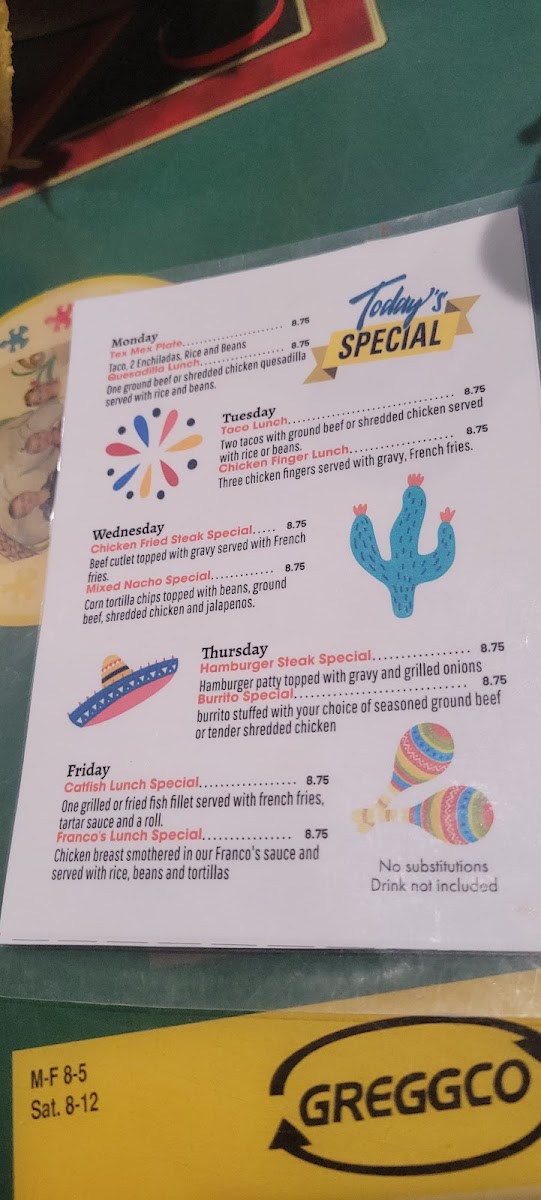 Today's
SPECIAL
Monday
Tex Mex Plate........................ 8.75
Taco, 2 Enchiladas, Rice and Beans
Quesadilla Lunch.................... 8.75
One ground beef or shredded chicken quesadilla
served with rice and beans.
Tuesday
Taco Lunch........................................ 8.75
Two tacos with ground beef or shredded chicken served
with rice or beans.
Chicken Finger Lunch......................... 8.75
Three chicken fingers served with gravy, French fries.
Wednesday
Chicken Fried Steak Special..... 8.75
Beef cutlet topped with gravy served with French
fries.
Mixed Nacho Special............. 8.75
Corn tortilla chips topped with beans, ground
beef, shredded chicken and jalapenos.
Thursday
Hamburger Steak Special.................... 8.75
Hamburger patty topped with gravy and grilled onions
Burrito Special................................... 8.75
burrito stuffed with your choice of seasoned ground beef
or tender shredded chicken
Friday
Catfish Lunch Special.................... 8.75
One grilled or fried fish fillet served with french fries,
tartar sauce and a roll.
Franco's Lunch Special.................. 8.75
Chicken breast smothered in our Franco's sauce and
served with rice, beans and tortillas
No substitutions
Drink not included
M-F 8-5
Sat. 8-12
GREGGCO